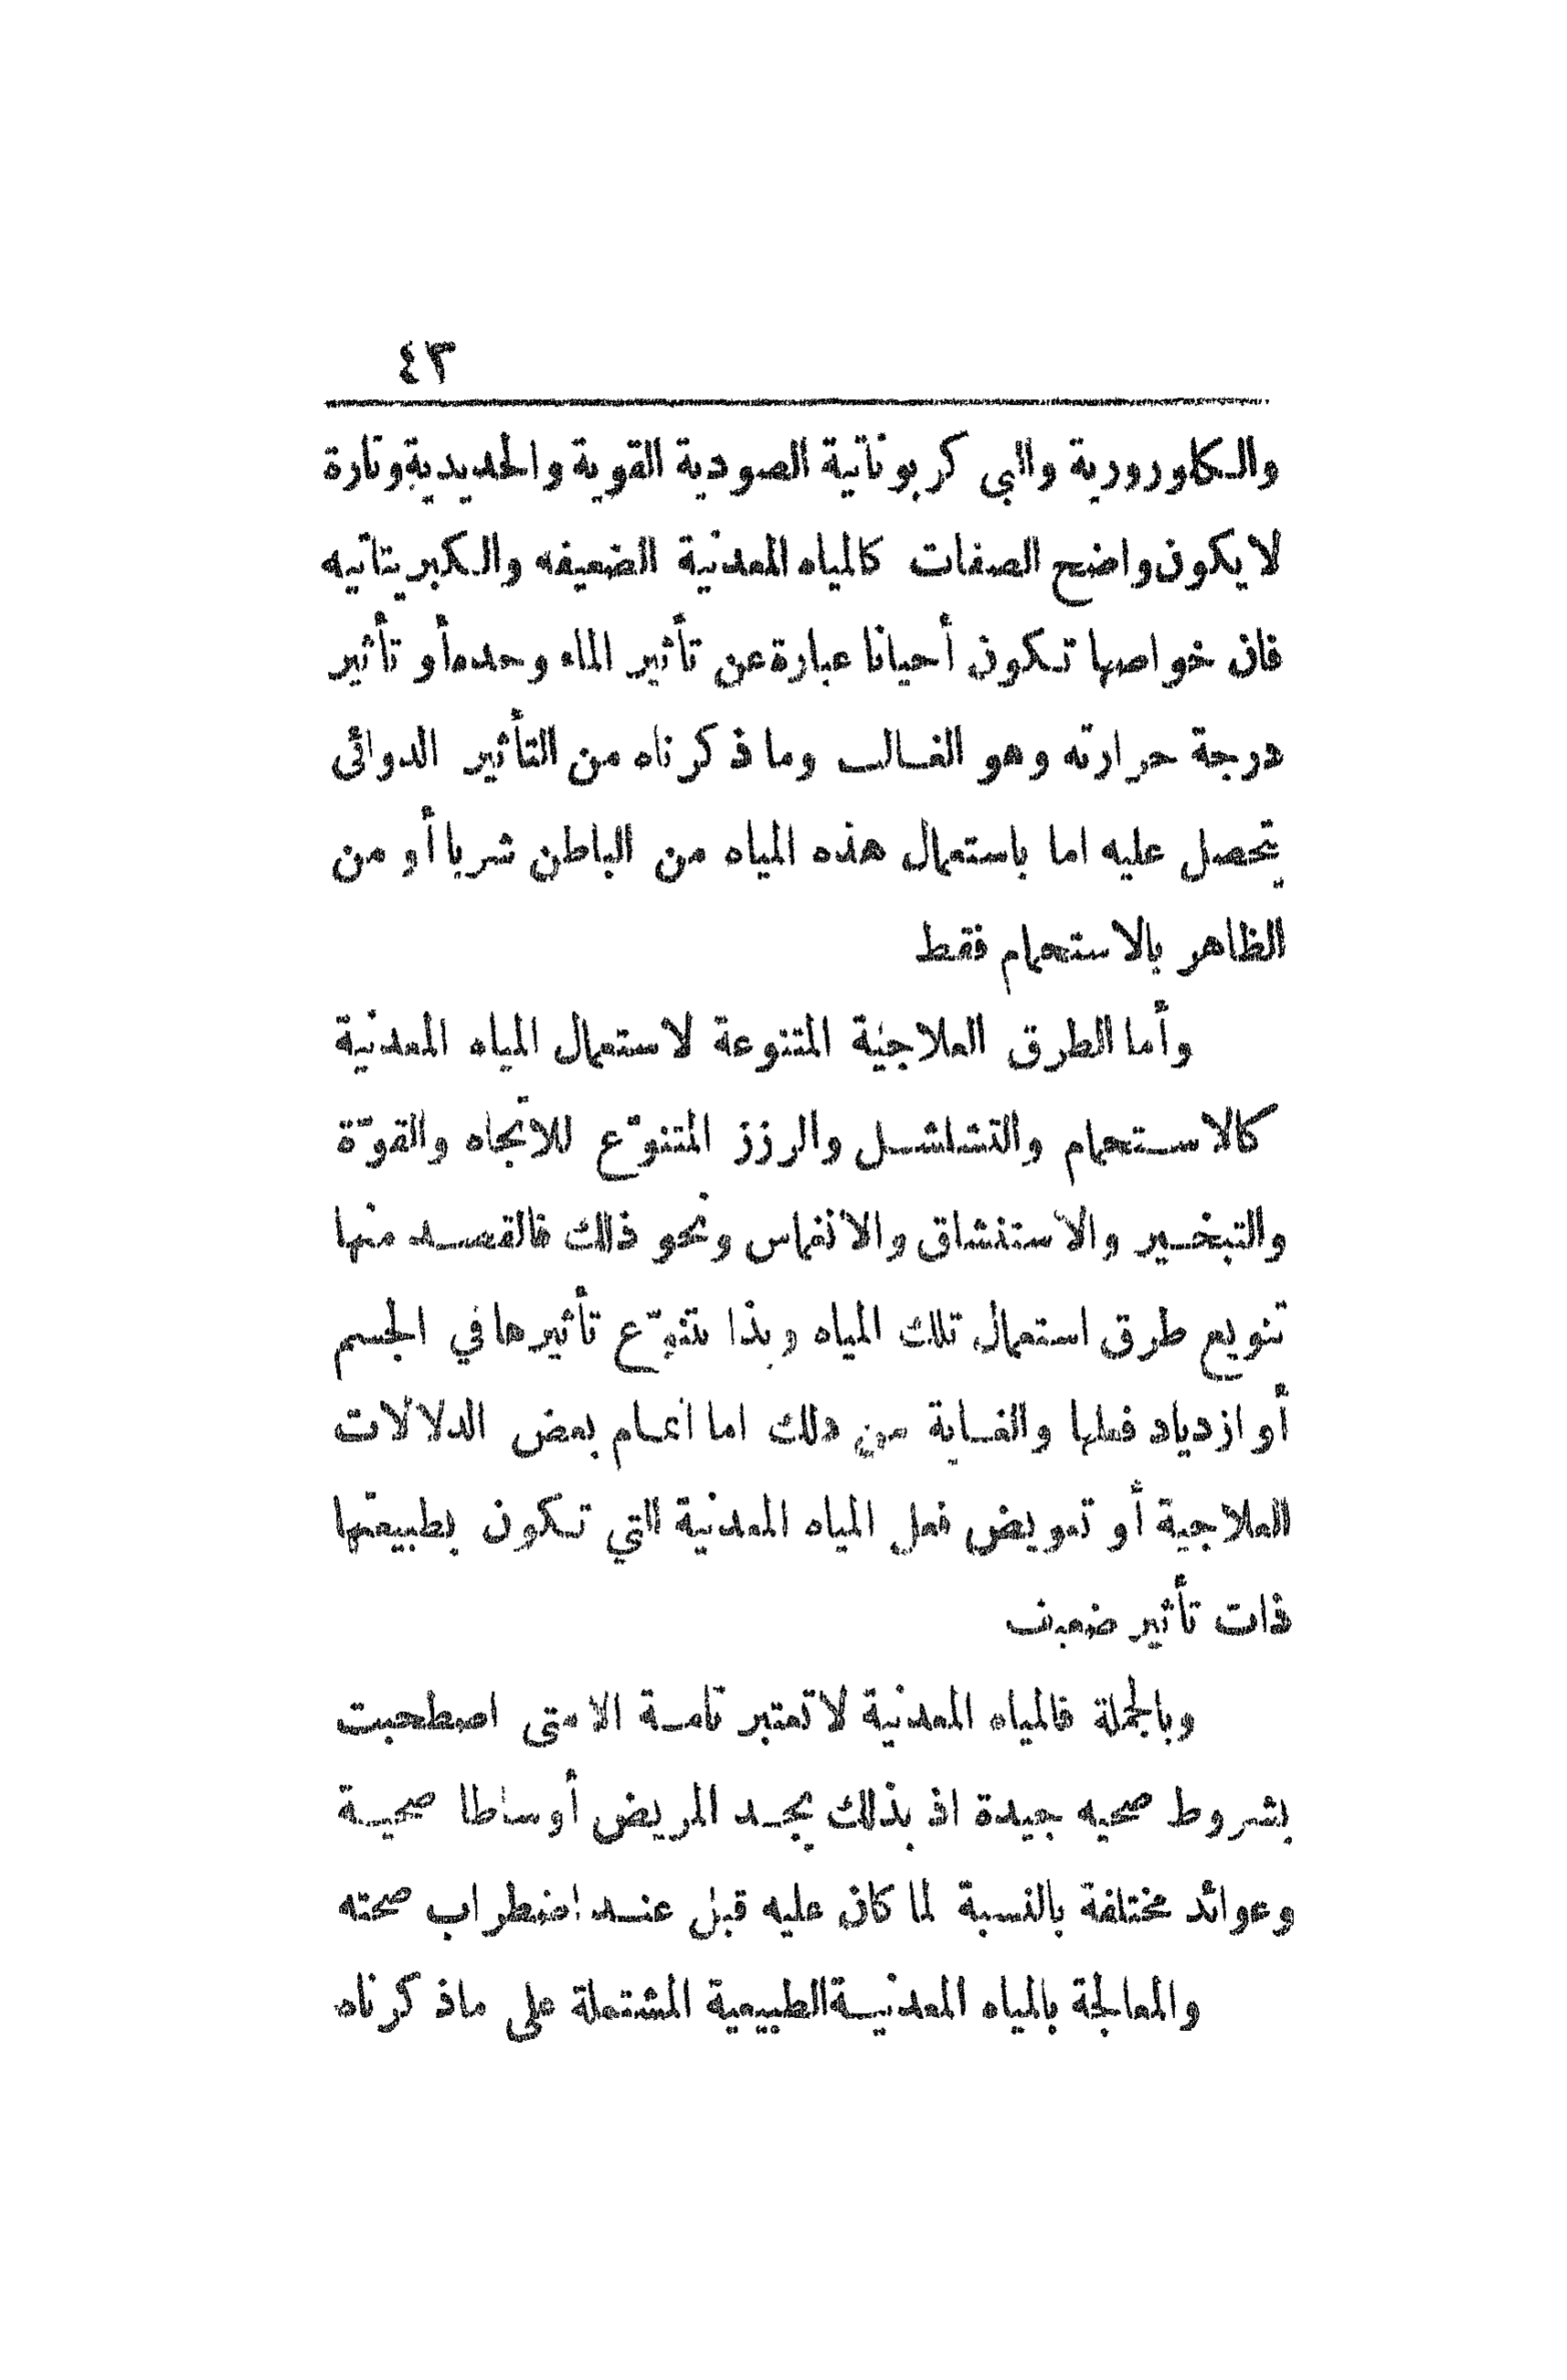 ٤٣
والكلورورية والبي كربوناتية الصودية القوية والحديدية وتارة
لا يكون واضح الصفات كالمياه المعدنية الضعيفه والكبريتاتيه
فان خواصها تكون أحيانا عبارة عن تأثير الماء وحده أو تأثير
درجة حرارته وهو الغالب وما ذكرناه من التأثير الدوائى
يتحصل عليه اما باستعمال هذه المياه من الباطن شربا أو من
الظاهر بالاستحمام فقط
وأما الطرق العلاجية المتنوعة لاستعمال المياه المعدنية
كالاستحمام والتشلشل والرزز المتنوّع للاتجاه والقوّة
والتبخير والاستنشاق والانغماس ونحو ذلك فالقصد منها
تنويع طرق استعمال تلك المياه وبذا يتنوّع تأثيرها في الجسم
أو ازدياد فعلها والغاية من ذلك اما اتمام بعض الدلالات
العلاجية أو تعويض فعل المياه المعدنية التي تكون بطبيعتها
ذات تأثير ضعيف
وبالجملة فالمياه المعدنية لا تعتبر تامة الا متى اصطحبت
بشروط صحيه جيدة اذ بذلك يجد المريض أوساطا صحية
وعوائد مختلفة بالنسبة لما كان عليه قبل عند اضطراب صحته
والمعالجة بالمياه المعدنية الطبيعية المشتملة على ماذكرناه